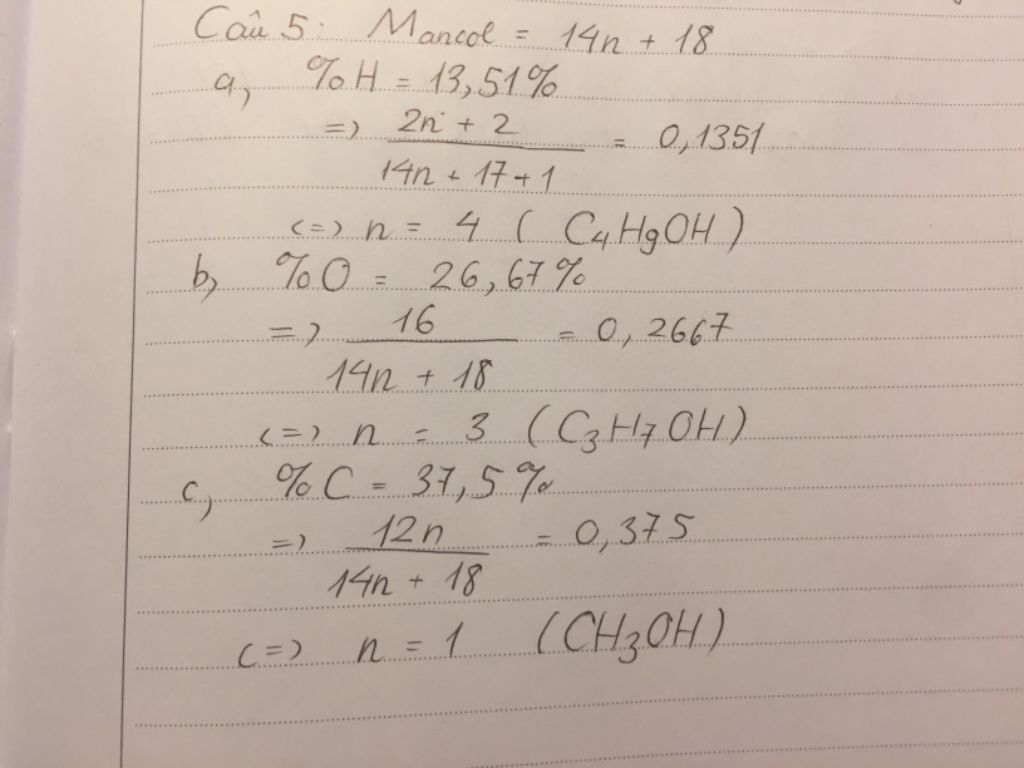 Câu 5: Mancol = 14n + 18
a, %H = 13,51%
=> 2n + 2 / 14n + 17 + 1 = 0,1351
<=> n = 4 ( C4H9OH )
b, %O = 26,67%
=> 16 / 14n + 18 = 0,2667
<=> n = 3 ( C3H7OH )
c, %C = 37,5%
=> 12n / 14n + 18 = 0,375
<=> n = 1 ( CH3OH )